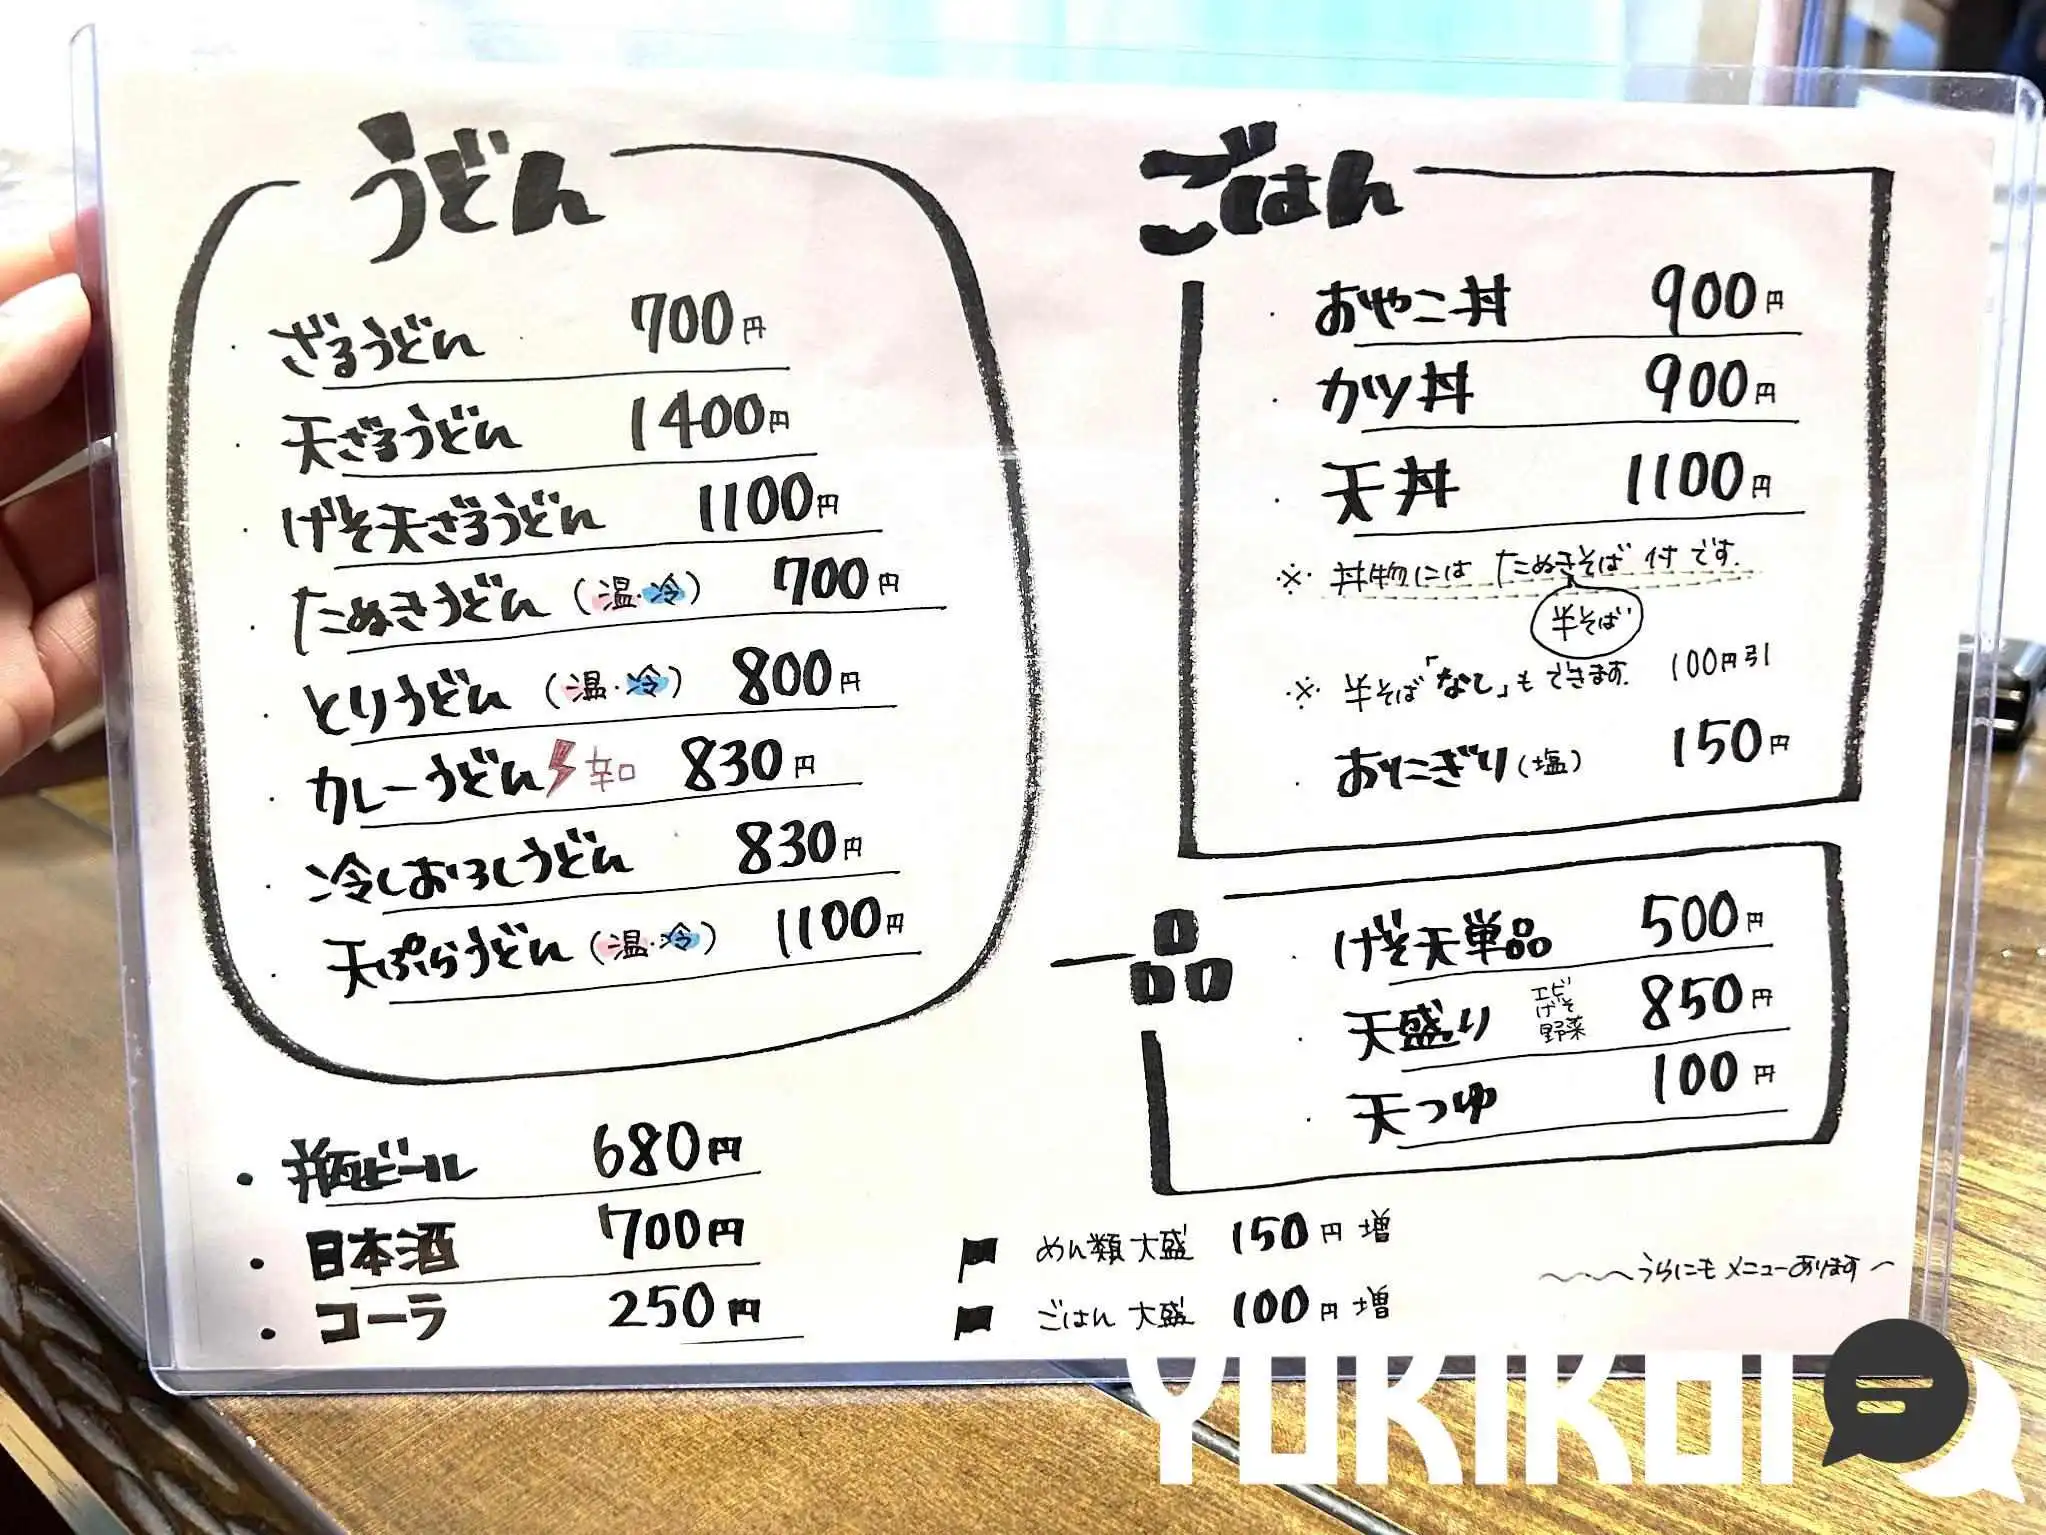 うどん
・ざるうどん 700円
・天ざるうどん 1400円
・げそ天ざるうどん 1100円
・たぬきうどん (温・冷) 700円
・とりうどん (温・冷) 800円
・カレーうどん 辛口 830円
・冷しおろしうどん 830円
・天ぷらうどん (温・冷) 1100円
・瓶ビール 680円
・日本酒 700円
・コーラ 250円
ごはん
・おやこ丼 900円
・カツ丼 900円
・天丼 1100円
※丼物には たぬきそば 付です.
半そば
※半そば「なし」もできます. 100円引
・おにぎり(塩) 150円
一品
・げそ天単品 500円
・天盛り エビ げそ 野菜 850円
・天つゆ 100円
めん類 大盛 150円増
ごはん 大盛 100円増
〜〜〜うらにもメニューあります〜
YUKIKOI